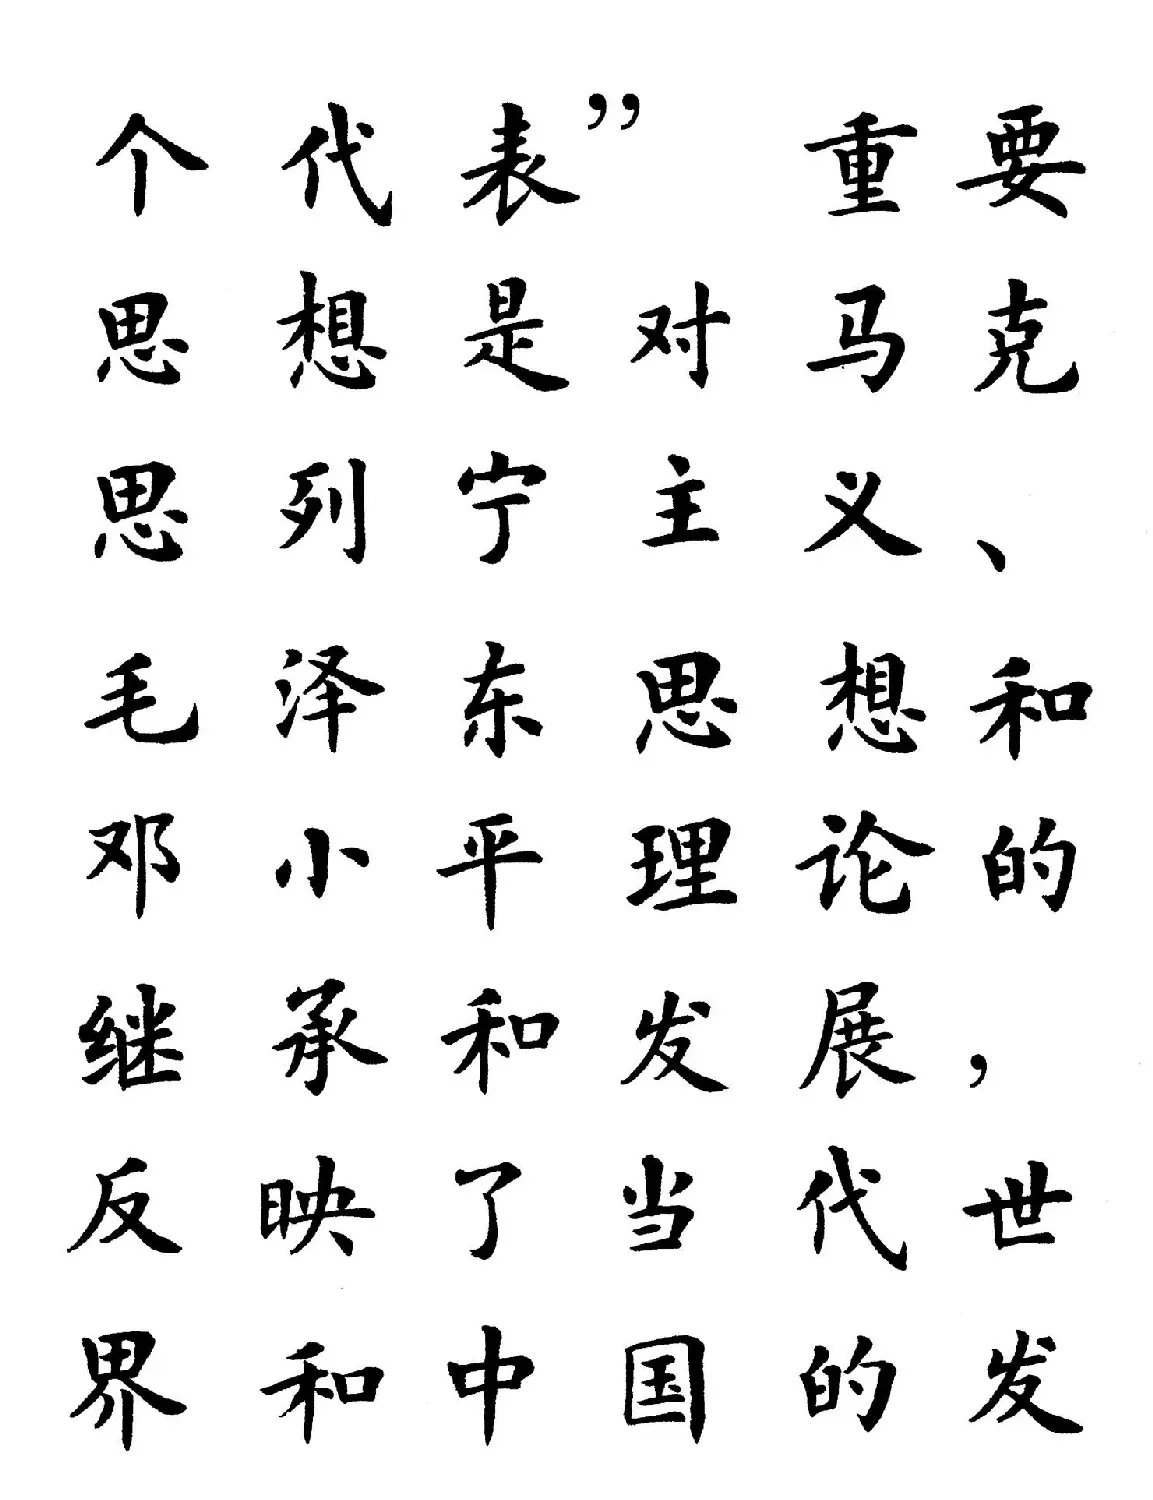 个代表”重要
思想是对马克
思列宁主义、
毛泽东思想和
邓小平理论的
继承和发展，
反映了当代世
界和中国的发